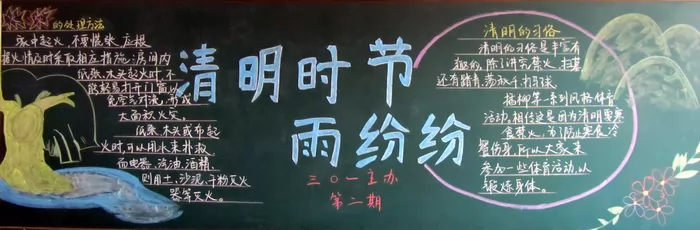 的处理方法
家中起火,不要慌张,应根
据火情及时采取相应措施:房间内
纸张、木头起火时,不
能轻易打开门窗,以
免空气对流,形成
大面积火灾。
纸张、木头或布起
火时,可以用水来扑救,
而电器、汽油、酒精、
则用土、沙泥、干粉灭火
器等灭火。
清明时节
雨纷纷
三〇一主办
第二期
清明的习俗
清明的习俗是丰富有
趣的,除了讲究禁火、扫墓
还有踏青、荡秋千、打马球
插柳等一系列风俗体育
活动,相传这是因为清明要寒
食禁火,为了防止寒食冷
餐伤身,所以大家来
参加一些体育活动,以
锻炼身体。